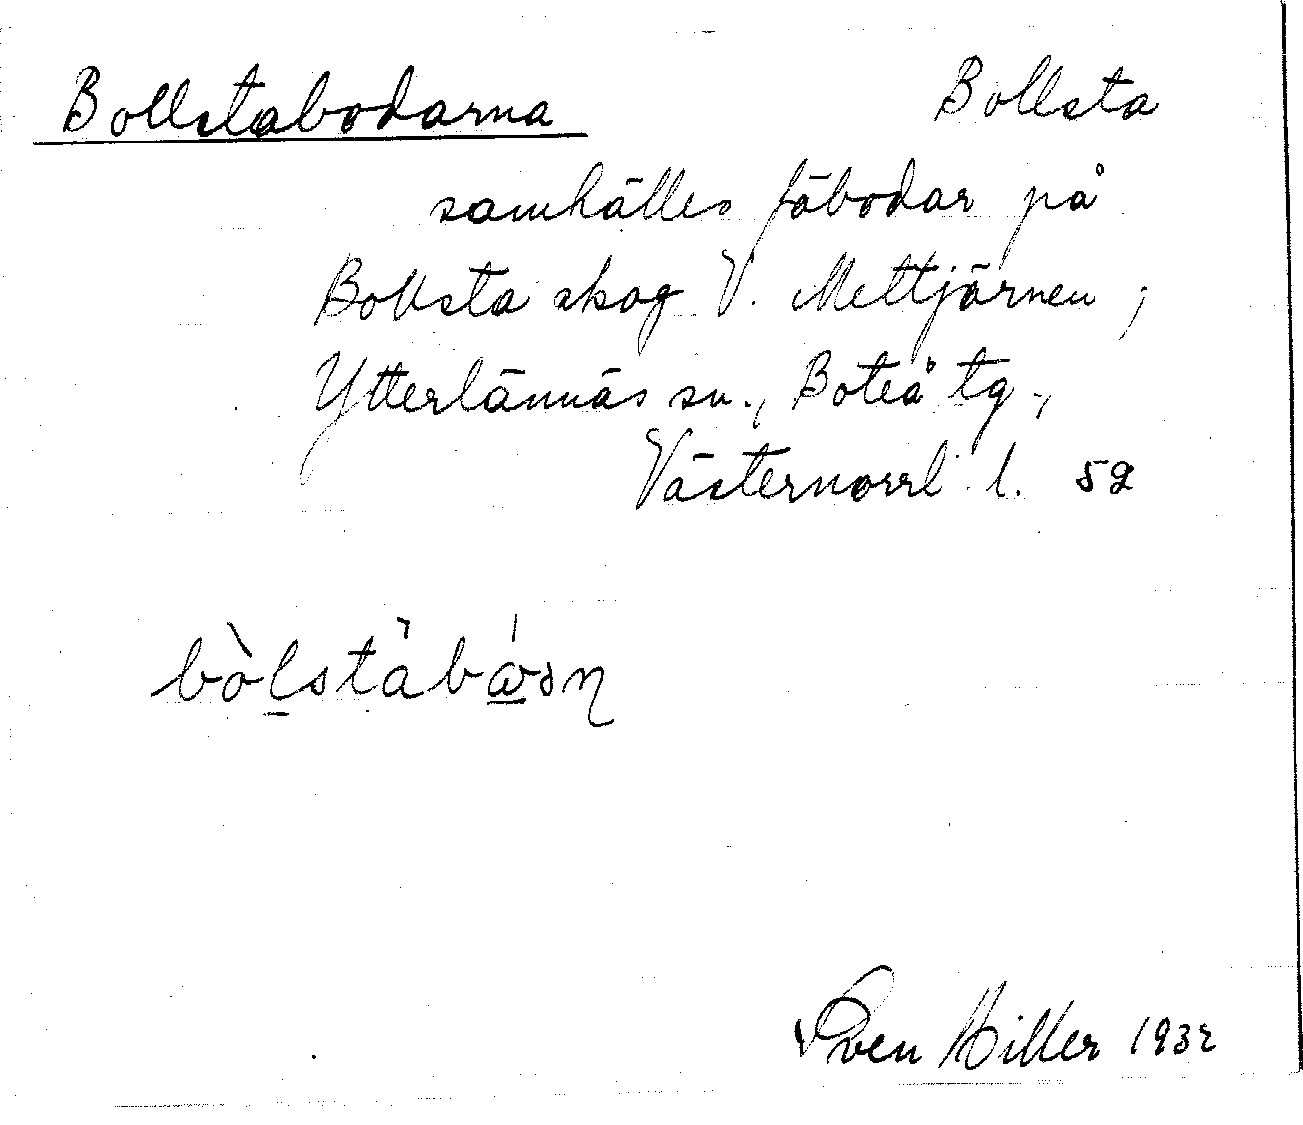 Bollstabodarna Bollsta
samhälles fäbodar på
Bollsta skog V. Meltjärnen;
Ytterlännäs sn., Boteå tg.,
Västernorrl. l. 52
Sven Hiller 1932